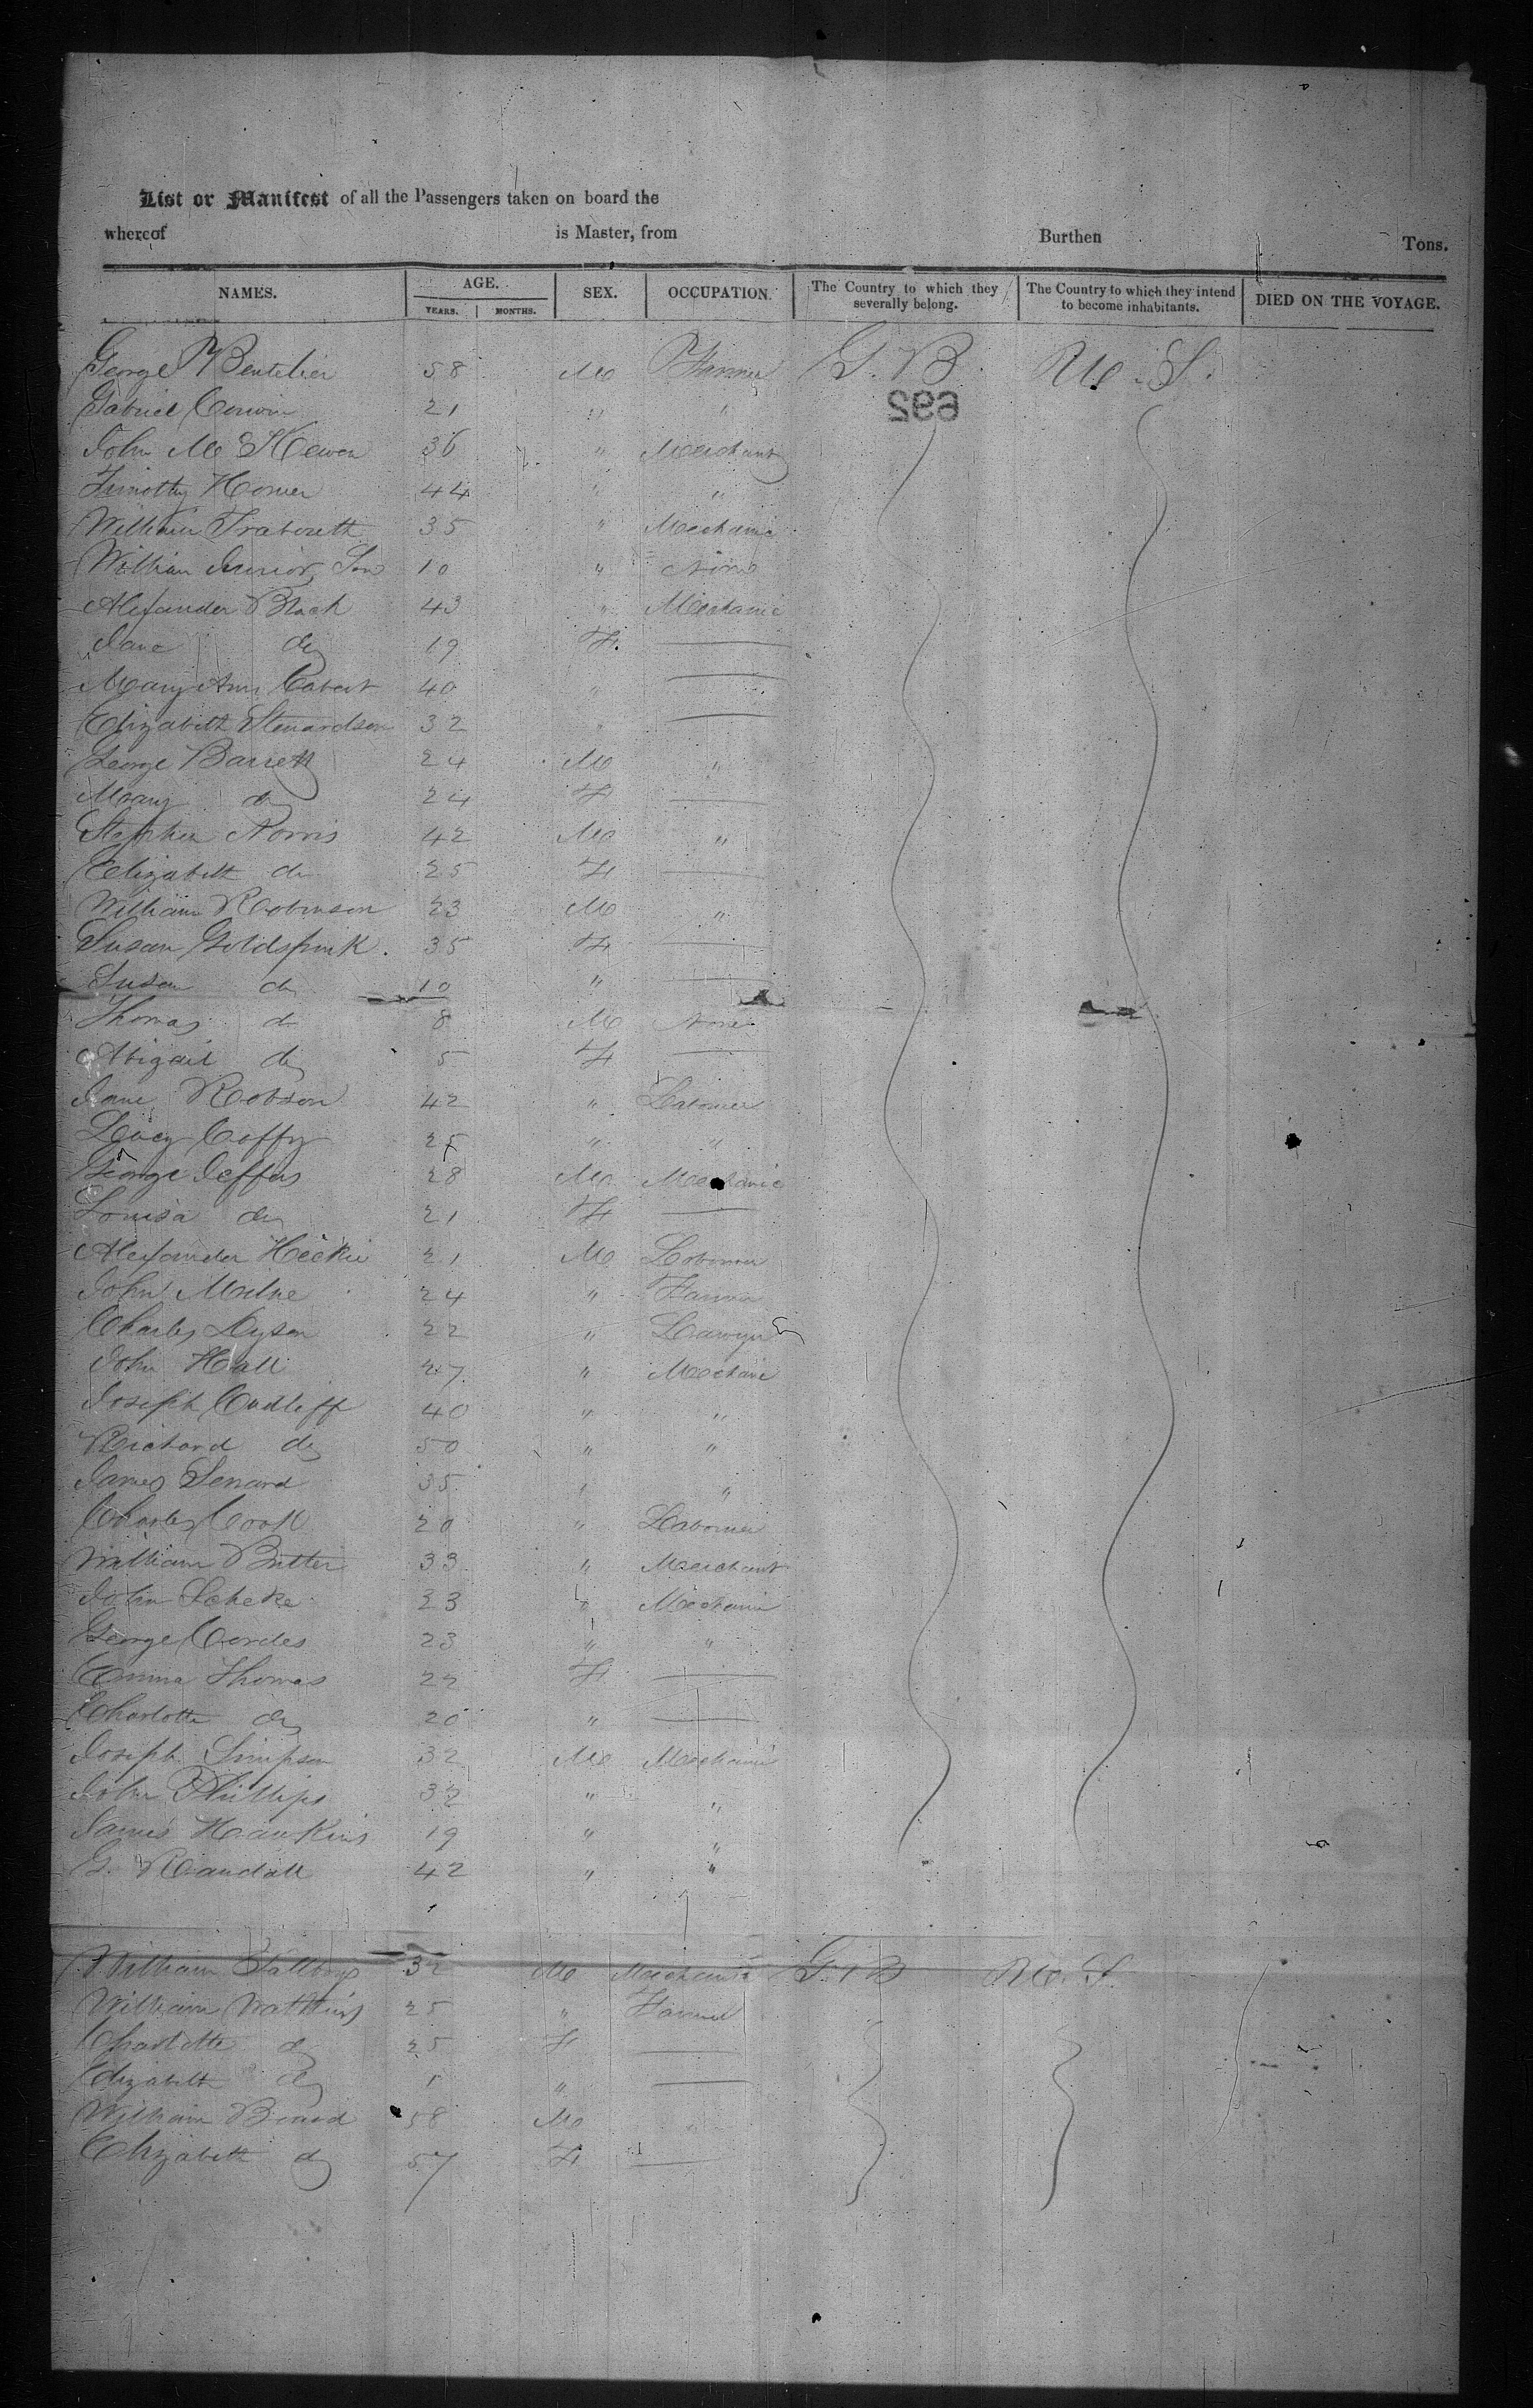 List or Manifest of all the Passengers taken on board the
whereof is Master, from Burthen Tons.
NAMES. AGE. YEARS. MONTHS. SEX. OCCUPATION. The Country to which they severally belong. The Country to which they intend to become inhabitants. DIED ON THE VOYAGE.
George 58 M Farmer G. B. U. S.
692
Gabriel 21 " "
John 36 " Merchant
Timothy Homer 44 " "
William 35 " Mechanic
William Junior, Son 10 " None
Alexander Black 43 " Mechanic
Jane do 19 F.
Mary Ann 40 "
Elizabeth Stewardson 32 "
George Barrett 24 M "
Mary do 24 F
Stephen Norris 42 M "
Elizabeth do 25 F
William Robinson 23 M "
Susan Goldspink. 35 F
Susan do 10 "
Thomas do 8 M None
Abigail do 5 F
Jane Robson 42 " Labourer
Lucy Coffy 25 " "
George Jeffers 28 M Mechanic
Louisa do 21 F
Alexander Heckie 21 M Labourer
John Milne 24 " Farmer
Charles Dyson 22 "
John Hall 27 " Mechanic
Joseph Cudliff 40 " "
Richard do 50 " "
James Lenard 35 " "
Charles Cook 20 " Labourer
William Butter 33 " Merchant
John 23 " Mechanic
George Cordes 23 " "
Emma Thomas 22 F
Charlotte do 20 "
Joseph Simpson 32 M Mechanic
John Phillips 32 " "
James Hawkins 19 " "
G. Randall 42 " "
William 32 M Mechanic G. B U. S.
William Watkins 25 " Farmer
Charlotte do 25 F
Elizabeth do 1 "
William 58 M
Elizabeth do 57 F